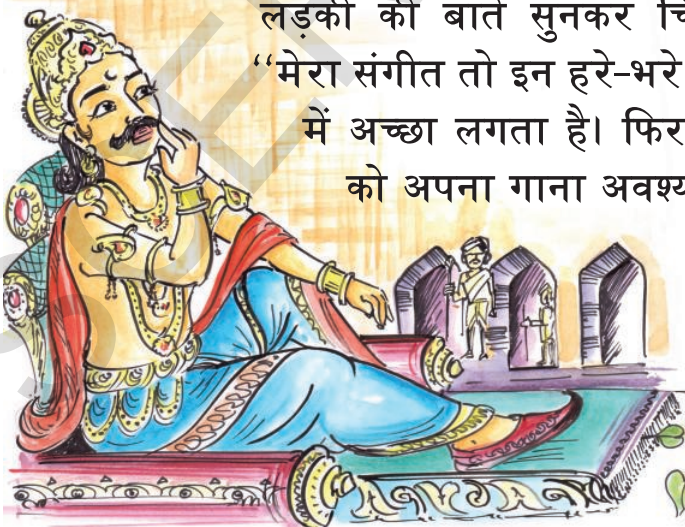 लड़की की बातें सुनकर
“मेरा संगीत तो इन हरे-भरे
में अच्छा लगता है। फिर
को अपना गाना